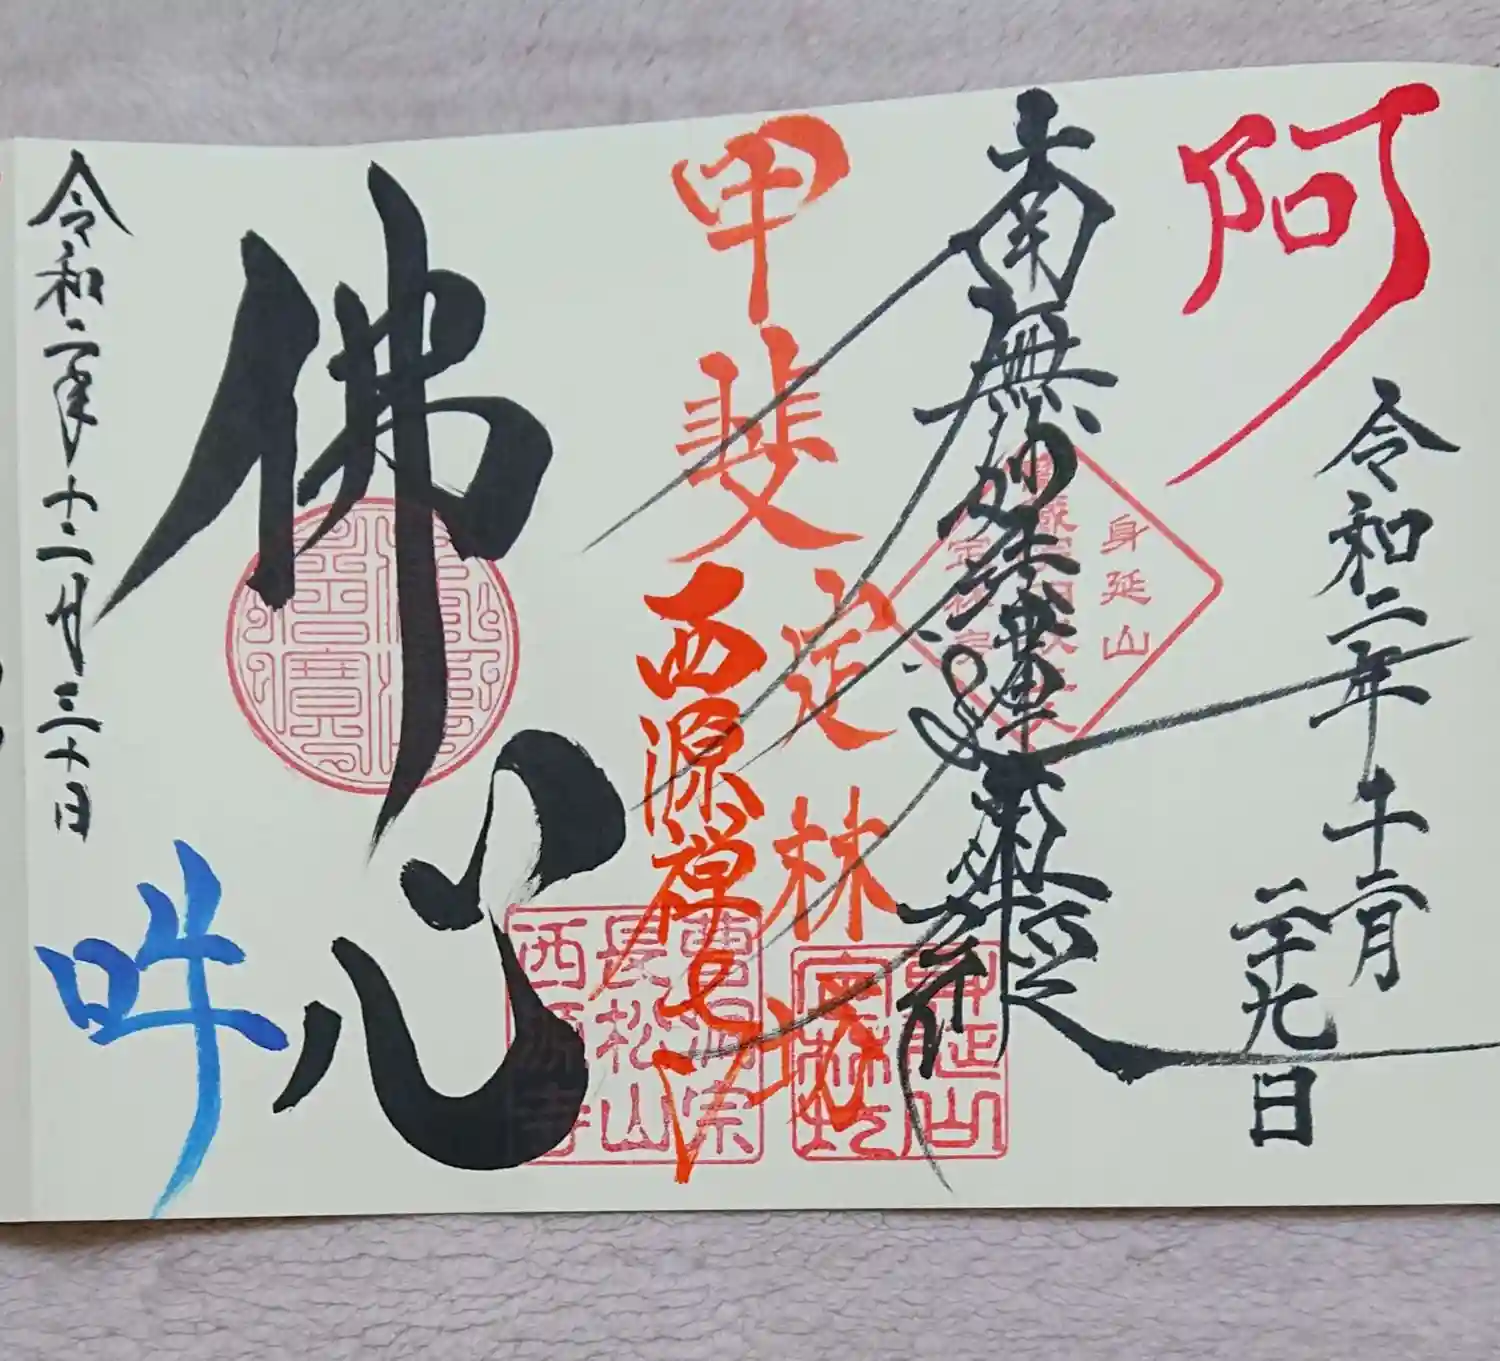 阿
令和二年
十二月
二十九日
身延山
南無妙法蓮華経
甲斐
定林坊
身延山
定林坊
西源禅寺
佛心
佛法僧寳
曹洞宗
長松山
西源寺
吽
令和二年十二月三十日